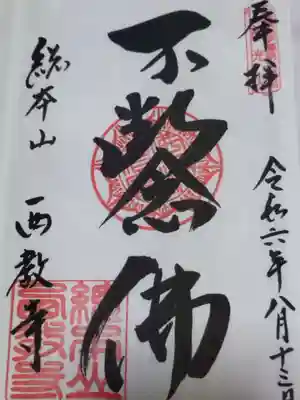 奉拝
令和六年八月十三日
不断念佛
総本山 西教寺